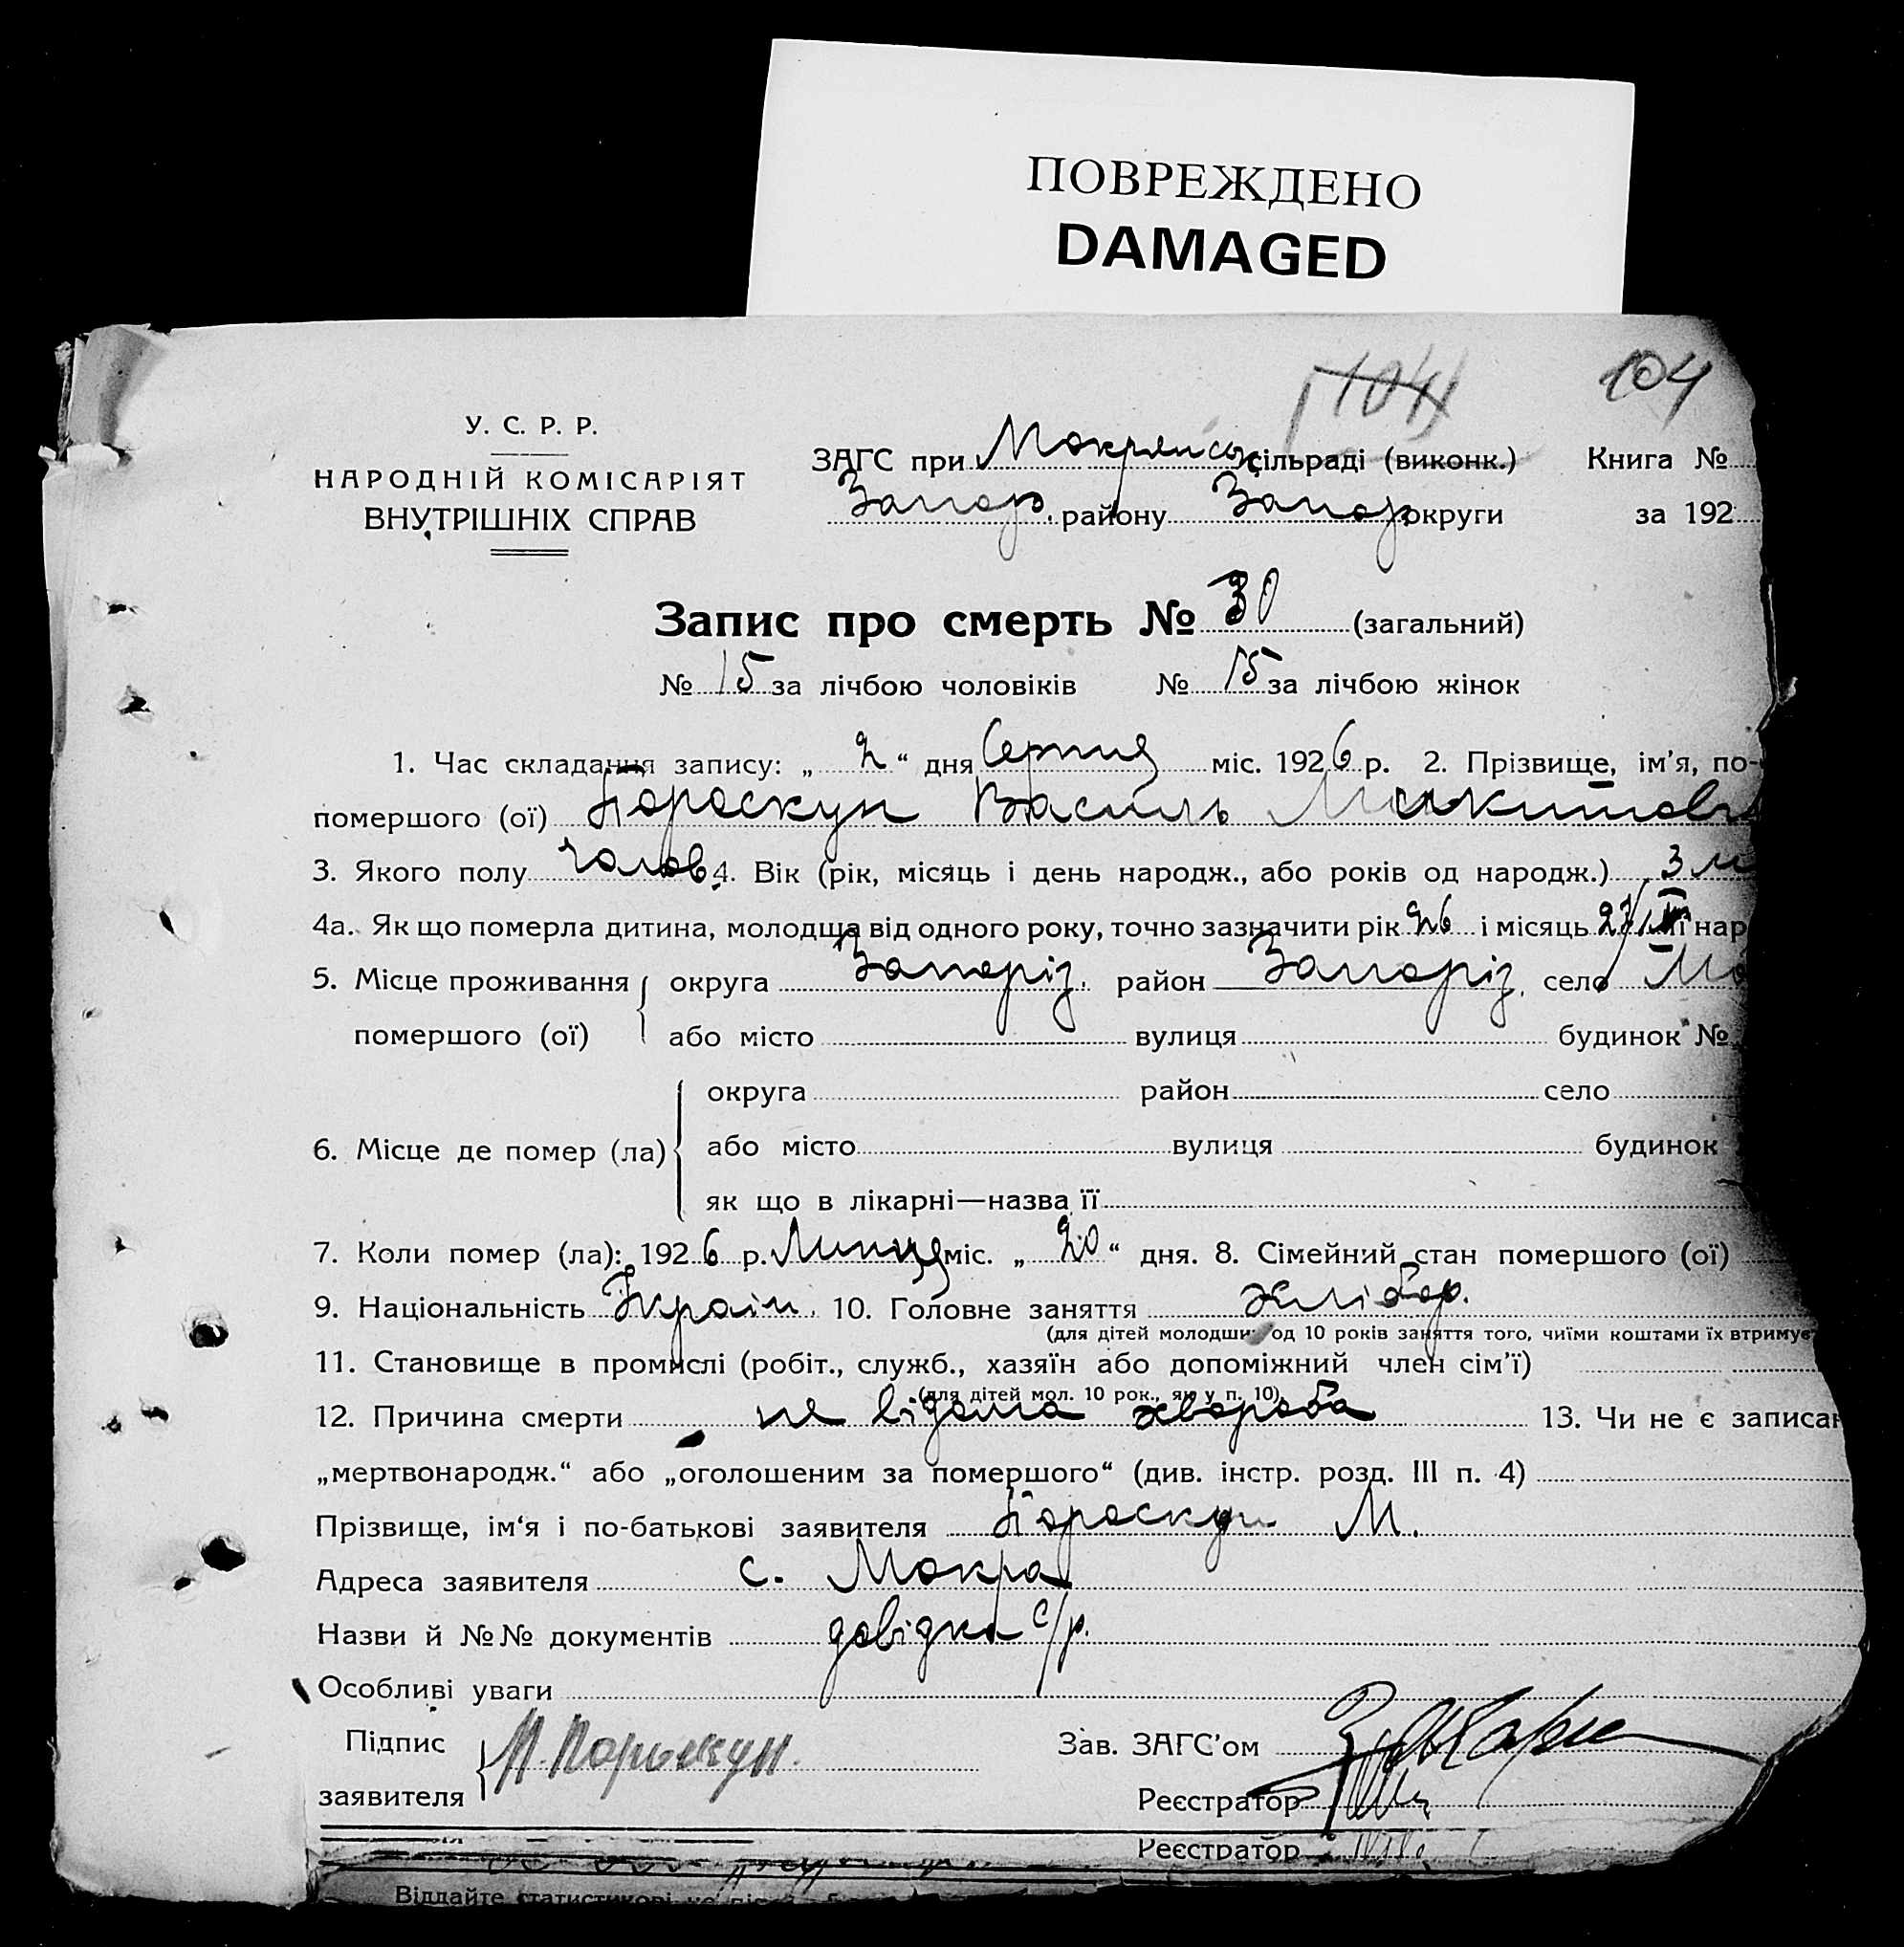 ПОВРЕЖДЕНО
DAMAGED
104
104
У. С. Р. Р.
НАРОДНІЙ КОМІСАРІЯТ
ВНУТРІШНІХ СПРАВ
ЗАГС при Мокрянськ сільраді (виконк.) Книга №
Запор. району Запор округи за 192
Запис про смерть № 30 (загальний)
№ 15 за лічбою чоловіків № 15 за лічбою жінок
1. Час складання запису: „ 2 “ дня Серпня міс. 1926 р. 2. Прізвище, ім’я, по-
помершого (ої) Пороскун Василь Микитов
3. Якого полу чолов 4. Вік (рік, місяць і день народж., або років од народж.) 3 м
4а. Як що померла дитина, молодща від одного року, точно зазначити рік 26 і місяць 27/ нар
5. Місце проживання округа Запоріз. район Запоріз. село Мо
помершого (ої) або місто вулиця будинок №
округа район село
6. Місце де помер (ла) або місто вулиця будинок
як що в лікарні—назва її
7. Коли помер (ла): 1926 р. Липня міс. „ 20 “ дня. 8. Сімейний стан помершого (ої)
9. Національність Україн. 10. Головне заняття хлібор.
(для дітей молодших од 10 років заняття того, чиїми коштами їх втримує
11. Становище в промислі (робіт., служб., хазяїн або допоміжний член сім’ї)
(для дітей мол. 10 рок., як у п. 10)
12. Причина смерти не відома хвороба 13. Чи не є записан
„мертвонародж.“ або „оголошеним за помершого“ (див. інстр. розд. III п. 4)
Прізвище, ім‘я і по-батькові заявителя Пороскун М.
Адреса заявителя с. Мокра
Назви й №№ документів довідка с/р.
Особливі уваги
Підпис заявителя М. Пороскун. Зав. ЗАГС’ом
Реєстратор
Реєстратор
Віддайте статистикові